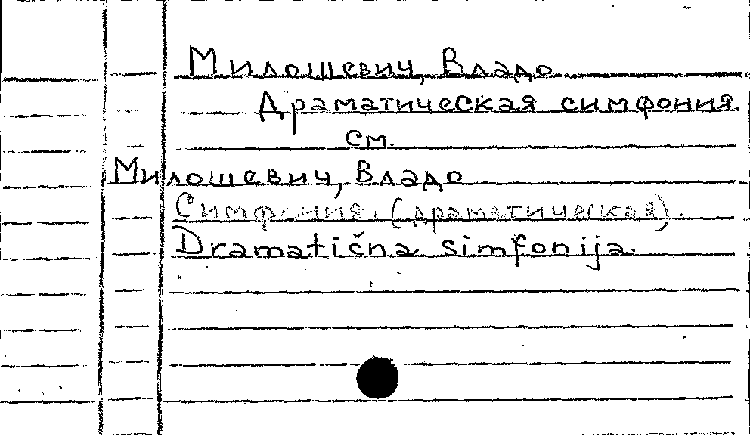 Милошевич, Владо
Драматическая симфония.
см.
Милошевич, Владо
Симфония. (драматическая).
Dramatična simfonija.